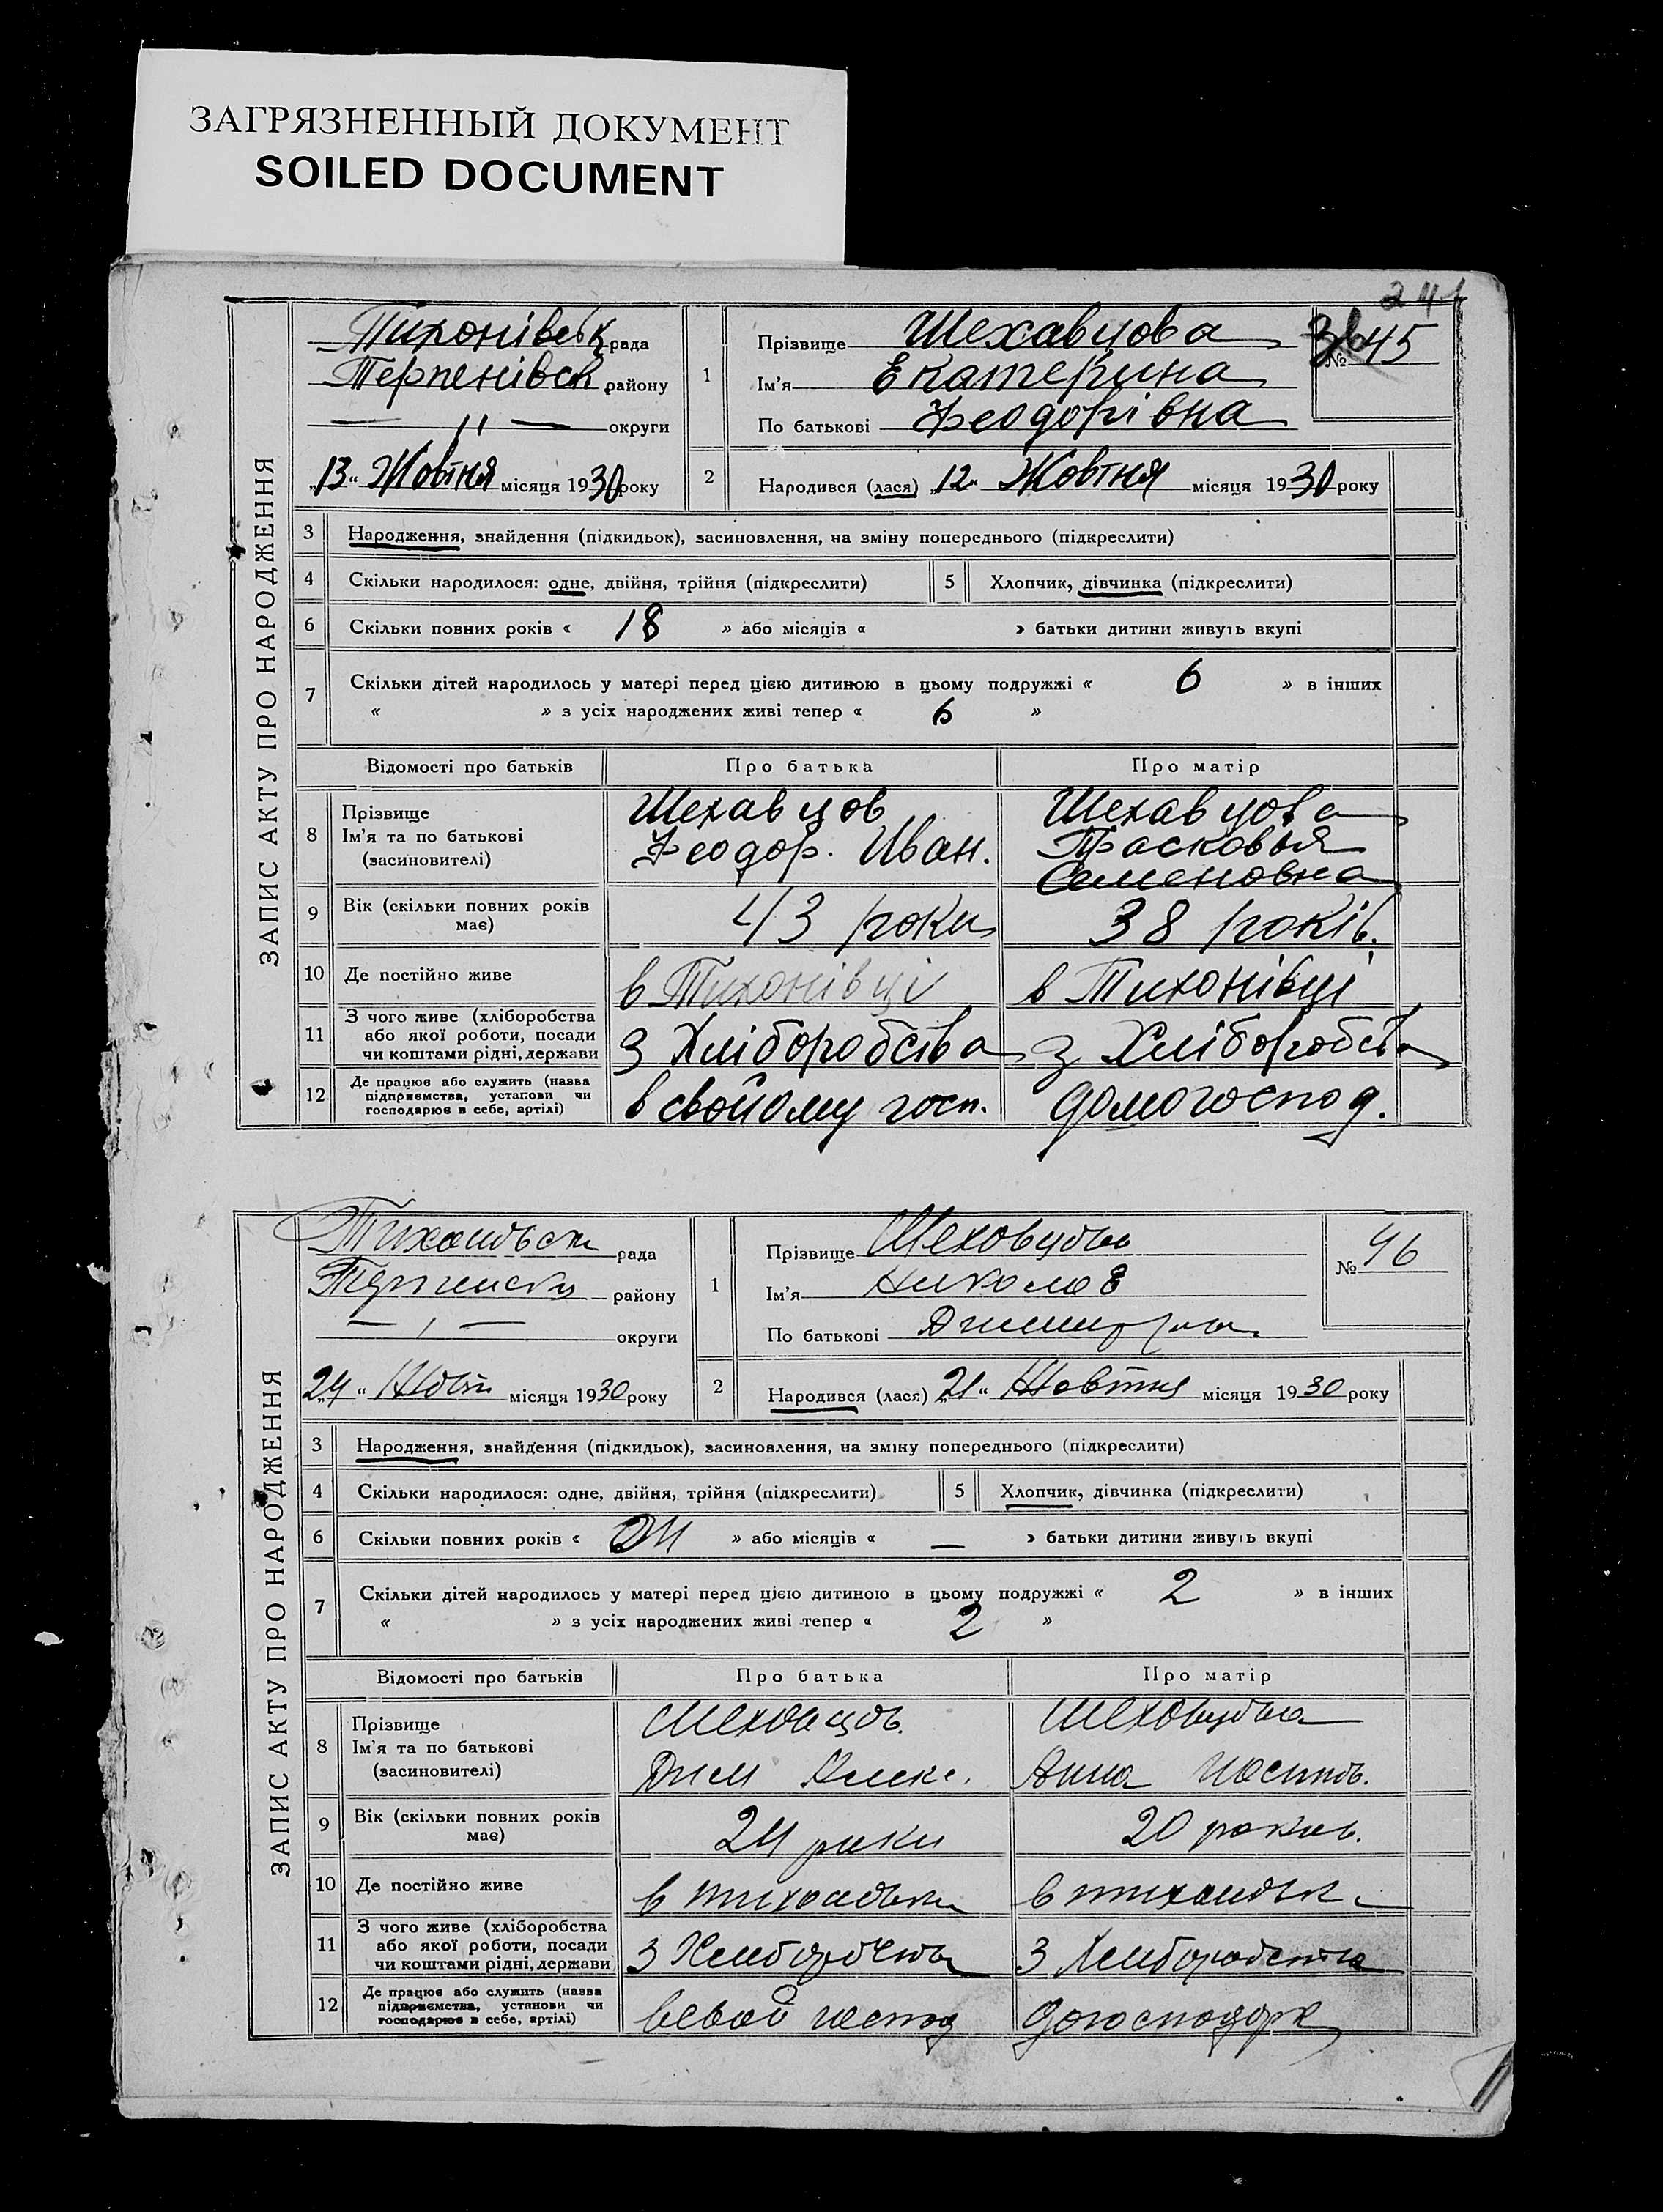 ЗАГРЯЗНЕННЫЙ ДОКУМЕНТ
SOILED DOCUMENT
241
ЗАПИС АКТУ ПРО НАРОДЖЕННЯ
Тихонівськ рада
Терпенівськ району
— " — округи
„13" Жовтня місяця 1930 року
1
Прізвище Шехавцова
Ім'я Екатерина
По батькові Феодорівна
№ 45
2
Народився (лася) „12" Жовтня місяця 1930 року
3 Народження, знайдення (підкидьок), засиновлення, на зміну попереднього (підкреслити)
4 Скільки народилося: одне, двійня, трійня (підкреслити) 5 Хлопчик, дівчинка (підкреслити)
6 Скільки повних років « 18 » або місяців « » батьки дитини живуть вкупі
7 Скільки дітей народилось у матері перед цією дитиною в цьому подружжі « 6 » в інших
« » з усіх народжених живі тепер « 6 »
Відомості про батьків Про батька Про матір
8 Прізвище
Ім'я та по батькові
(засиновителі)
Шехавцов
Феодор. Иван.
Шехавцова
Прасковья
Семеновна
9 Вік (скільки повних років має) 43 роки 38 років.
10 Де постійно живе в Тихонівці в Тихонівці
11 З чого живе (хліборобства
або якої роботи, посади
чи коштами рідні, держави
З Хліборобства З Хліборобства
12 Де працює або служить (назва
підприємства, установи чи
господарює в себе, артілі)
в свойому госп. домогоспод.
ЗАПИС АКТУ ПРО НАРОДЖЕННЯ
рада
району
— " — округи
„24" Жовт місяця 1930 року
1
Прізвище Шеховцова
Ім'я Николай
По батькові
№ 46
2
Народився (лася) „21" Жовтня місяця 1930 року
3 Народження, знайдення (підкидьок), засиновлення, на зміну попереднього (підкреслити)
4 Скільки народилося: одне, двійня, трійня (підкреслити) 5 Хлопчик, дівчинка (підкреслити)
6 Скільки повних років « » або місяців « — » батьки дитини живуть вкупі
7 Скільки дітей народилось у матері перед цією дитиною в цьому подружжі « 2 » в інших
« » з усіх народжених живі тепер « 2 »
Відомості про батьків Про батька Про матір
8 Прізвище
Ім'я та по батькові
(засиновителі)
Шеховцов.
Дим Алекс.
Шеховцова
Анна Иосипов.
9 Вік (скільки повних років має) 24 роки 20 роков.
10 Де постійно живе
11 З чого живе (хліборобства
або якої роботи, посади
чи коштами рідні, держави
З Хлиборобства З Хлиборобства
12 Де працює або служить (назва
підприємства, установи чи
господарює в себе, артілі)